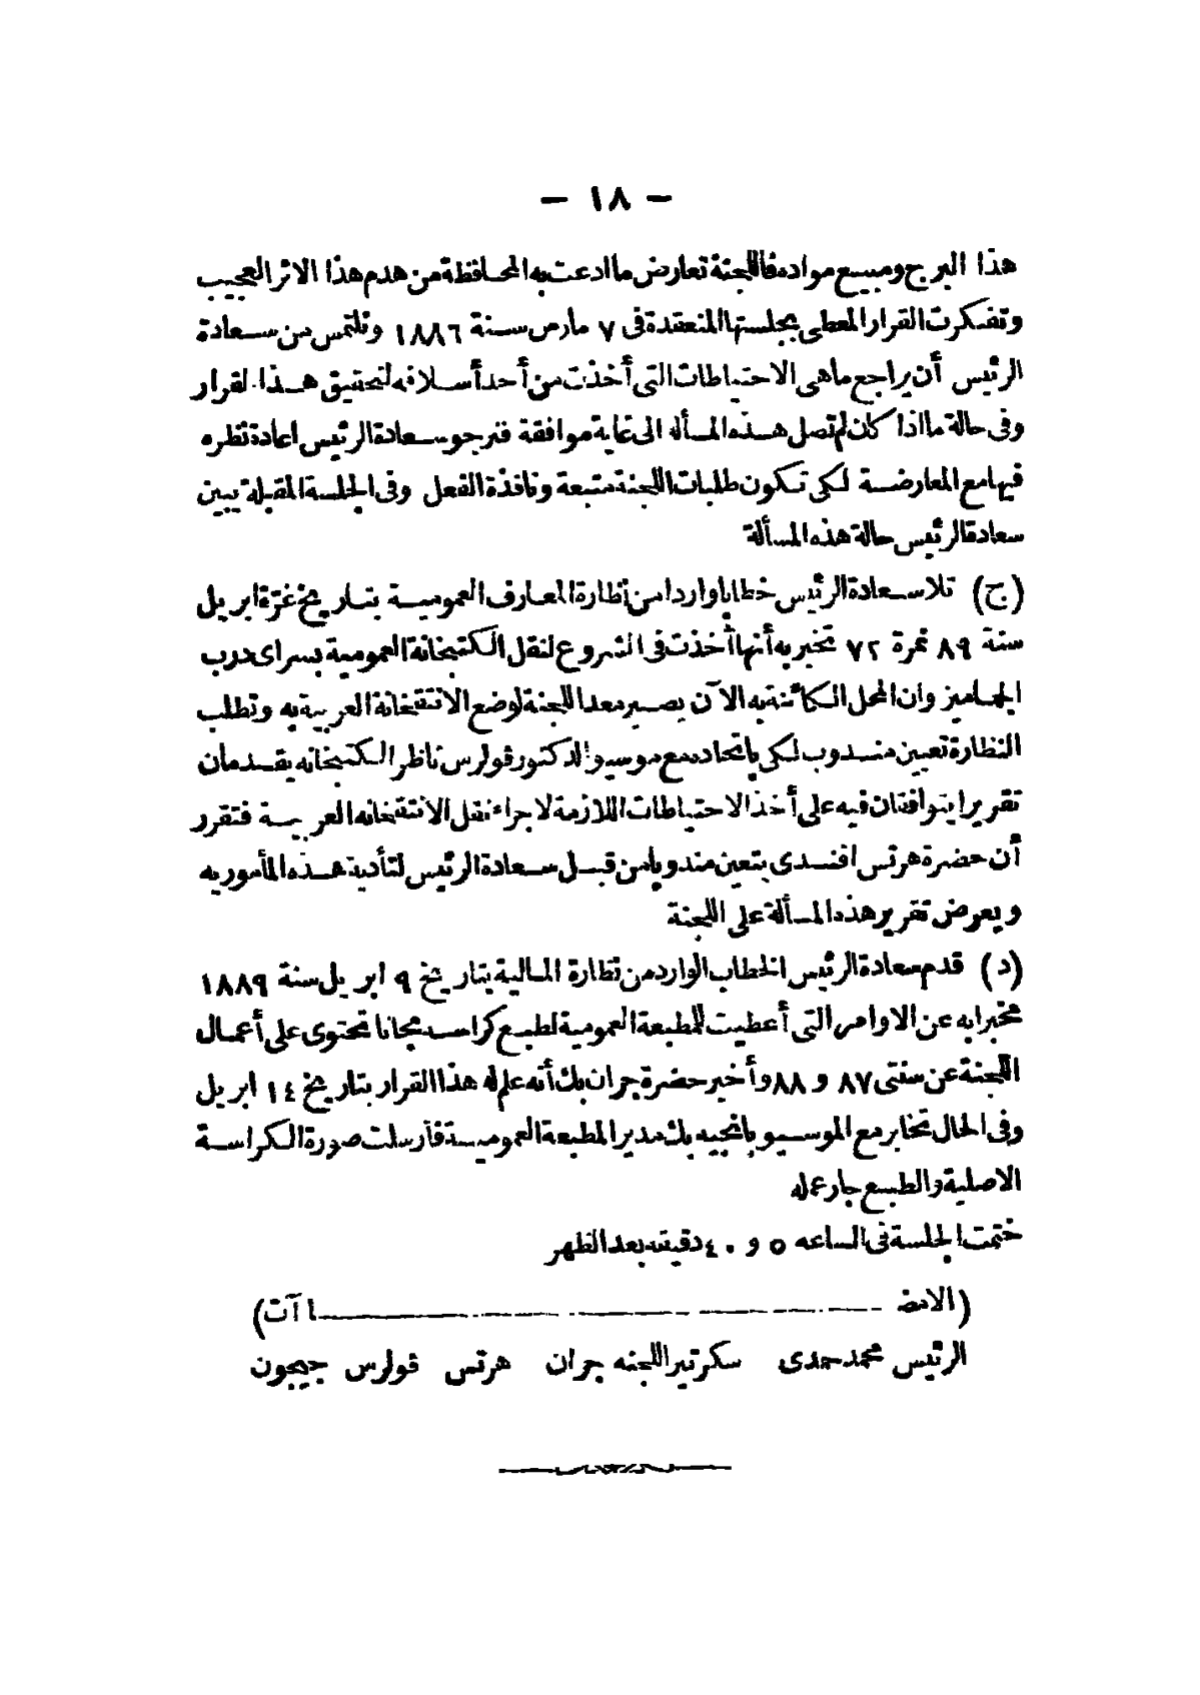 — ١٨ —
هذا البرج ومبيع مواده فاللجنة تعارض ما ادعت به المحافظة من هدم هذا الاثر العجيب
وتفكرت القرار المعطى بجلستها المنعقدة فى ٧ مارس سنة ١٨٨٦ وتلتمس من سعادة
الرئيس أن يراجع ماهى الاحتياطات التى أخذت من أحد أسلافه لتحقيق هذا القرار
وفى حالة ما اذا كان لم تصل هذه المسأله الى غاية موافقة فنرجو سعادة الرئيس اعادة نظره
فيها مع المعارضة لكى تكون طلبات اللجنة متبعة ونافذة الفعل وفى الجلسة المقبلة يبين
سعادة الرئيس حالة هذه المسألة
(ج) تلا سعادة الرئيس خطابا واردا من نظارة المعارف العمومية بتاريخ غرة ابريل
سنة ٨٩ نمرة ٧٢ تخبر به أنها أخذت فى الشروع لنقل الكتبخانة العمومية بسراى درب
الجماميز وان المحل الكائنة به الآن يصير معدا للجنة لوضع الانتقخانة العربية به وتطلب
النظارة تعيين مندوب لكى باتحاده مع موسيو الدكتور ڤولرس ناظر الكتبخانه يقدمان
تقريرا يتوافقان فيه على أخذ الاحتياطات اللازمة لاجراء نقل الانتقخانه العربية فتقرر
أن حضرة هرتس افندى يتعين مندوبا من قبل سعادة الرئيس لتأدية هذه المأموريه
ويعرض تقرير هذه المسألة على اللجنة
(د) قدم سعادة الرئيس الخطاب الوارد من نظارة المالية بتاريخ ٩ ابريل سنة ١٨٨٩
مخبرا به عن الاوامر التى أعطيت للمطبعة العمومية لطبع كراسه مجانا تحتوى على أعمال
اللجنة عن سنتى ٨٧ و ٨٨ وأخبر حضرة جران بك أنه علم له هذا القرار بتاريخ ١٤ ابريل
وفى الحال تخابر مع الموسيو بانجيه بك مدير المطبعة العمومية فأرسلت صورة الكراسة
الاصلية والطبع جار عمله
ختمت الجلسة فى الساعه ٥ و ٤٠ دقيقه بعد الظهر
(الامضاآت)
الرئيس محمد حمدى سكرتير اللجنه جران هرتس ڤولرس جيجون